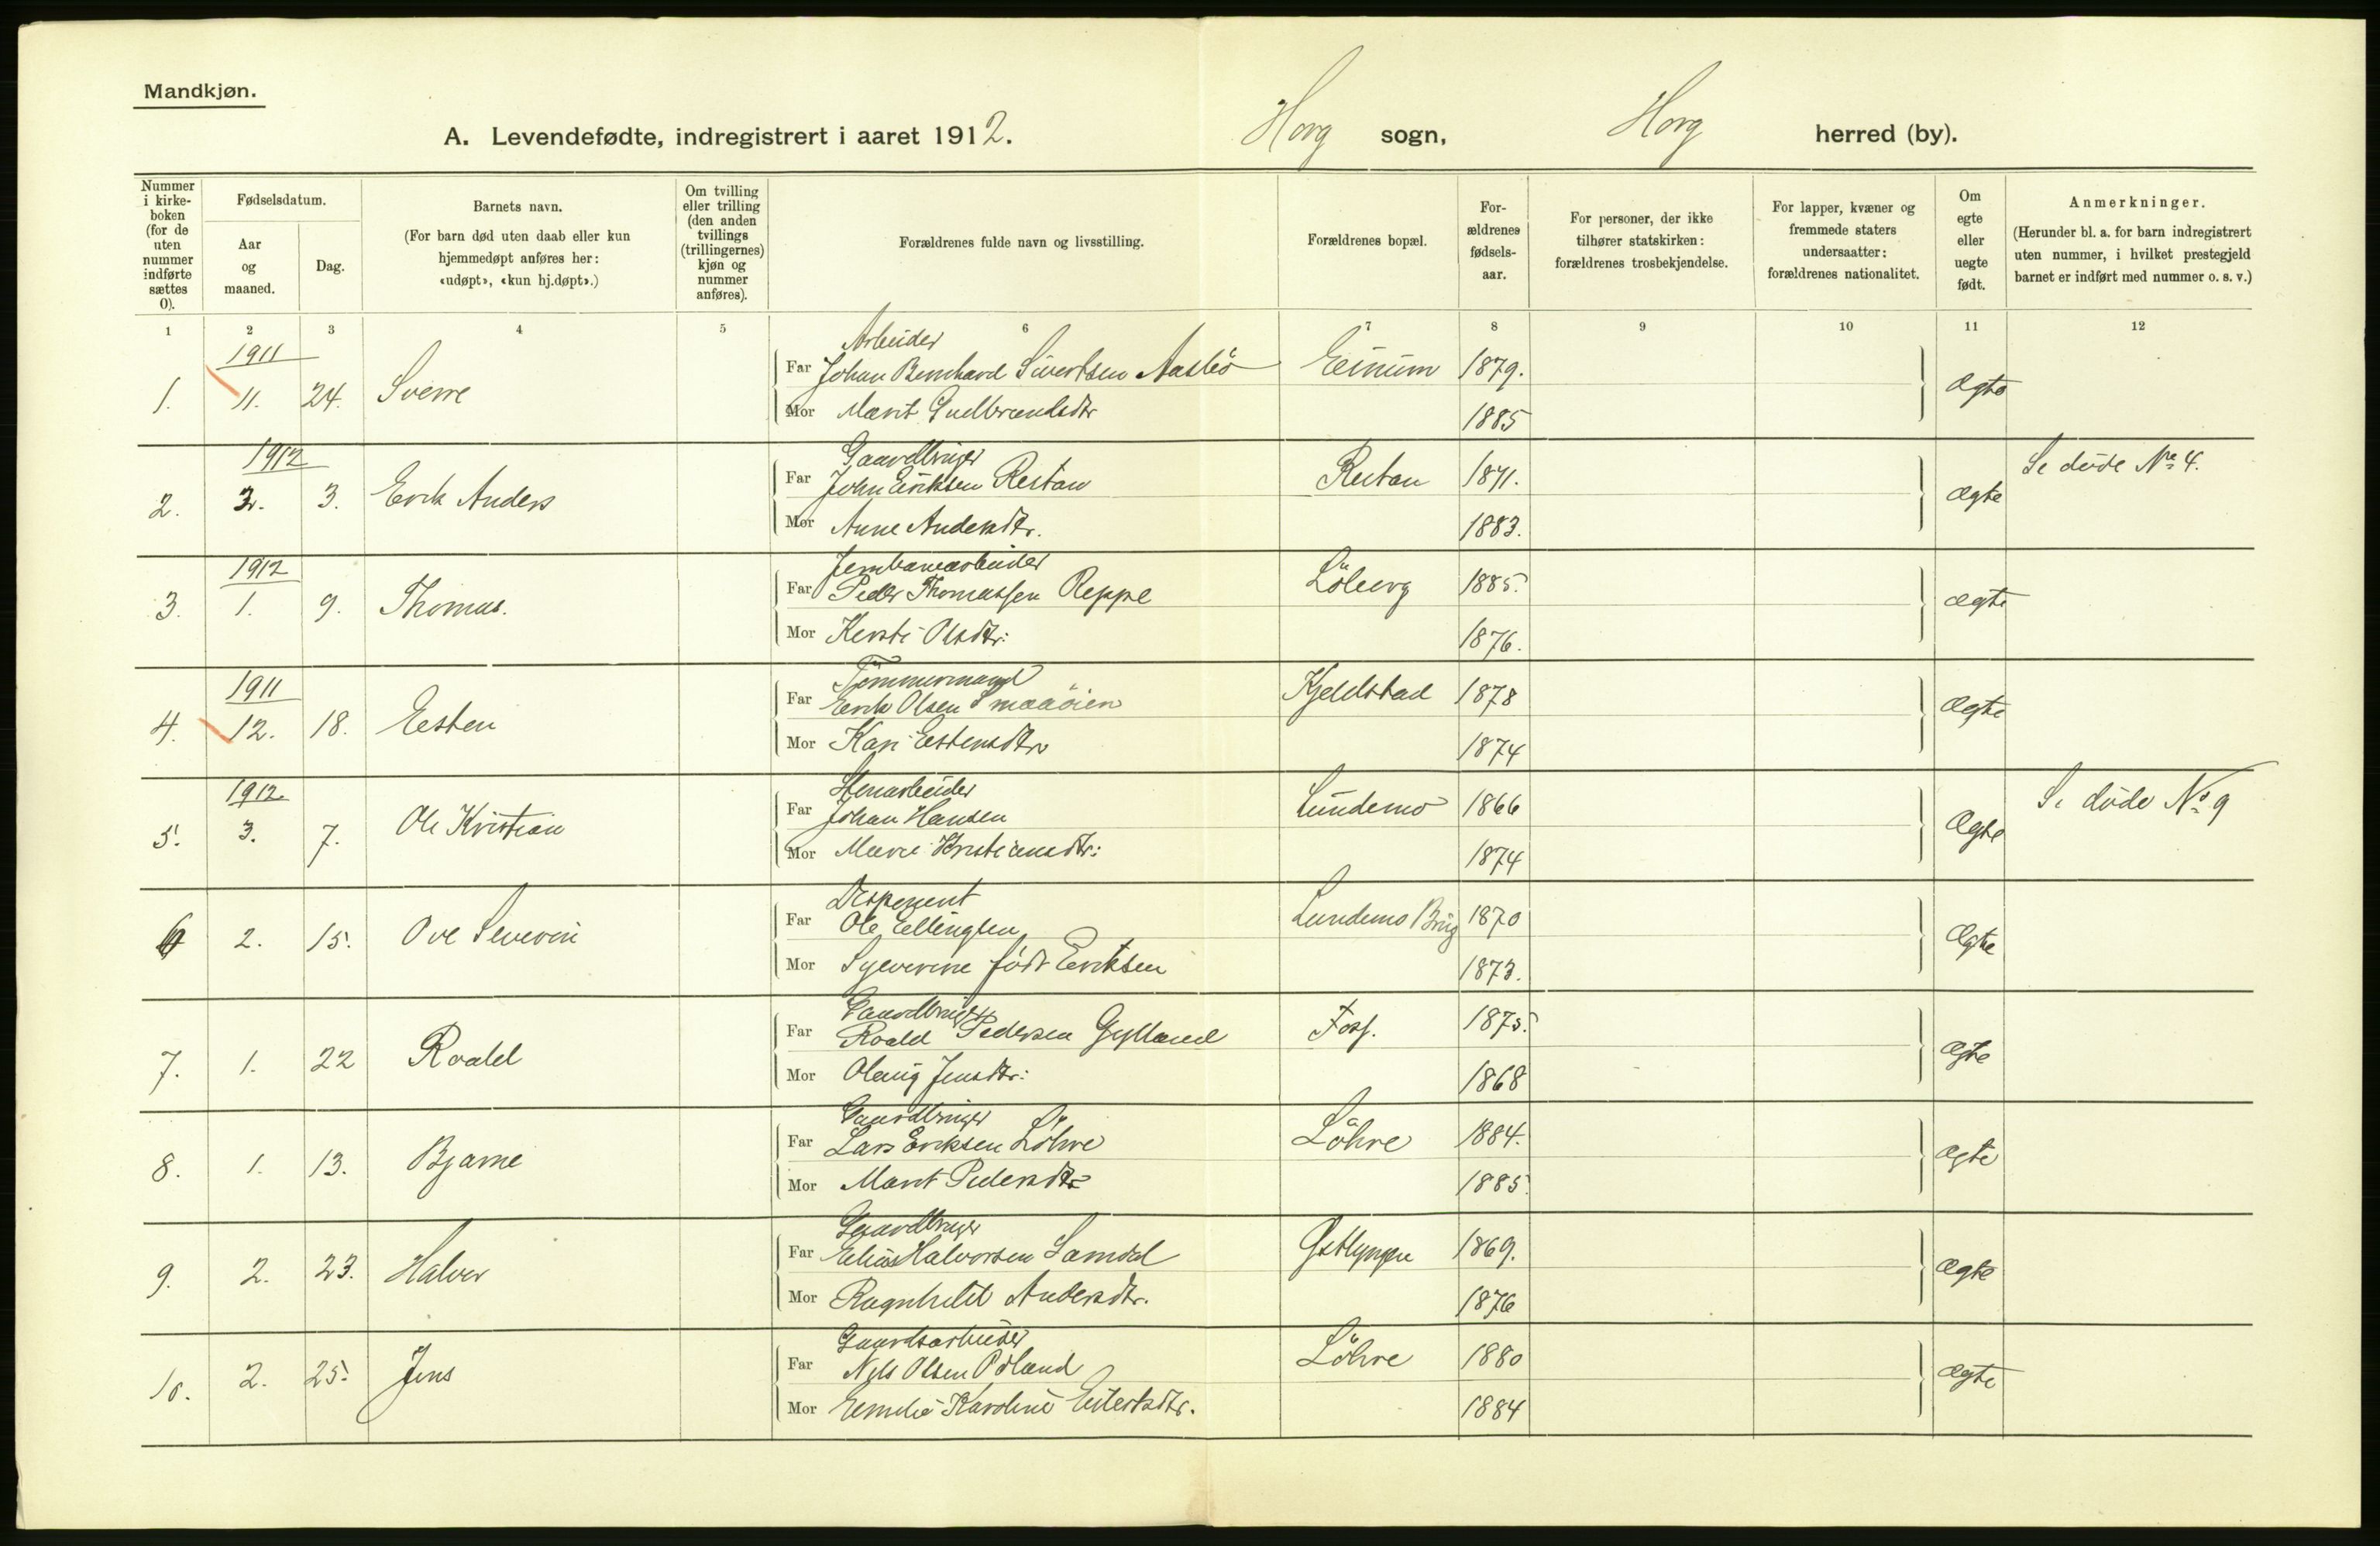 Mandkjøn.
A. Levendefødte, indregistrert i aaret 1912. Horg sogn, Horg herred (by).
Nummer i kirke-boken (for de uten nummer indførte sættes 0).
Fødselsdatum.
Aar og maaned.
Dag.
Barnets navn.
(For barn død uten daab eller kun hjemmedøpt anføres her: «udøpt», «kun hj.døpt».)
Om tvilling eller trilling (den anden tvillings (trillingernes) kjøn og nummer anføres).
Forældrenes fulde navn og livsstilling.
Forældrenes bopæl.
For-ældrenes fødsels-aar.
For personer, der ikke tilhører statskirken: forældrenes trosbekjendelse.
For lapper, kvæner og fremmede staters undersaatter: forældrenes nationalitet.
Om egte eller uegte født.
Anmerkninger.
(Herunder bl. a. for barn indregistrert uten nummer, i hvilket prestegjeld barnet er indført med nummer o. s. v.)
1 2 3 4 5 6 7 8 9 10 11 12
1911 Arbeider
1. 11. 24. Sverre Far Johan Bernhard Sivertsen Aasbö 1879. Ægte
Mor Marit Gudbrandsdtr 1885
1912 Gaardbruger
2. 3. Erik Anders Far John Eriksen Restan Restan 1871. Ægte Se døde No 4.
Mor Anne Andersdtr. 1883.
1912 Jernbanearbeider
3. 1. 9. Thomas. Far Peder Thomassen Reppe Löberg 1885. Ægte
Mor Kersti Olsdtr: 1876.
1911 Tömmermand
4. 12. 18. Esten Far Erik Olsen Smaaöien Kjeldstad 1878 Ægte
Mor Kari Estensdtr 1874
1912. Stenarbeider
5. 3. 7. Ole Kristian Far Johan Hansen Lundemo 1866 Ægte Se døde No 9
Mor Kristiansdtr: 1874
Disponent
6 2. 15. Ove Severin Far Ole Ellingsen Lundemo Brug 1870 Ægte
Mor Syverine født Eriksen 1873.
Gaardbruger
7. 1. 22 Roald Far Roald Pedersen Gylland 1875. Ægte
Mor Olaug Jensdtr: 1868
Gaardbruger
8. 1. 13. Bjarne Far Lars Eriksen Löhre Löhre 1884. Ægte
Mor Marit Pedersdtr 1885.
Gaardbruger
9. 2. 23. Halvor Far Elias Halvorsen Samdal 1869. Ægte
Mor Ragnhild Andersdtr. 1876
Gaardsarbeider
10. 2. 25. Jens Far Nils Olsen Löhre 1880 Ægte
Mor Emelie Karoline Eilertsdtr. 1884